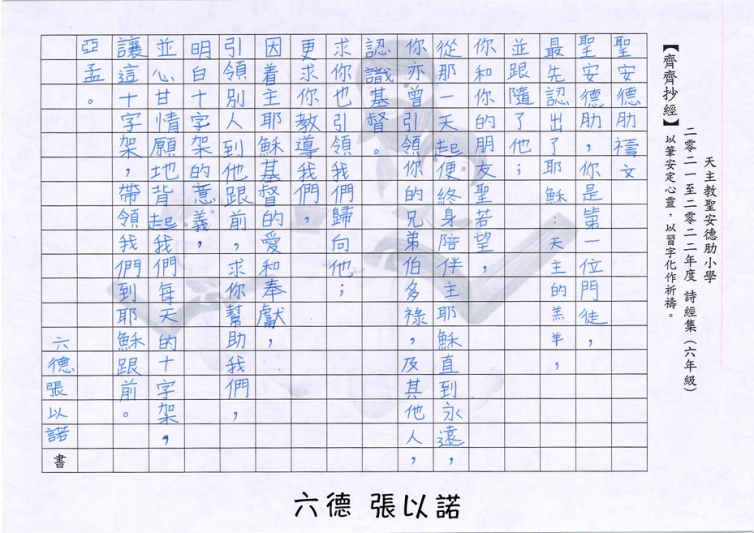 天主教聖安德肋小學
二零二一至二零二二年度 詩經集（六年級）
【齊齊抄經】以筆安定心靈，以習字化作祈禱。
聖安德肋禱文
聖安德肋，你是第一位門徒，
最先認出了耶穌：天主的羔羊，
並跟隨了他；
你和你的朋友聖若望，
從那一天起便終身陪伴主耶穌直到永遠，
你亦曾引領你的兄弟伯多祿，及其他人，
認識基督。
求你也引領我們歸向他；
更求你教導我們，
因着主耶穌基督的愛和奉獻，
引領別人到他跟前，求你幫助我們，
明白十字架的意義，
並心甘情願地背起我們每天的十字架，
讓這十字架，帶領我們到耶穌跟前。
亞孟。
六德張以諾書
六德 張以諾